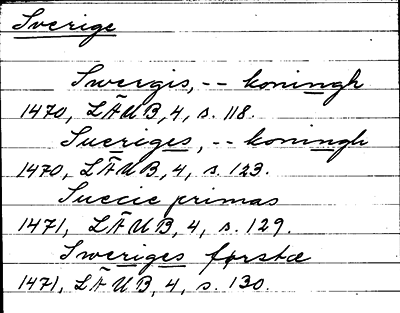 Sverige
Swergis, -- koningh
1470, LÄUB, 4, s. 118.
Sueriges, -- koningh
1470, LÄUB, 4, s. 123.
Suecie primas
1471, LÄUB, 4, s. 129.
Sweriges første
1471, LÄUB, 4, s. 130.